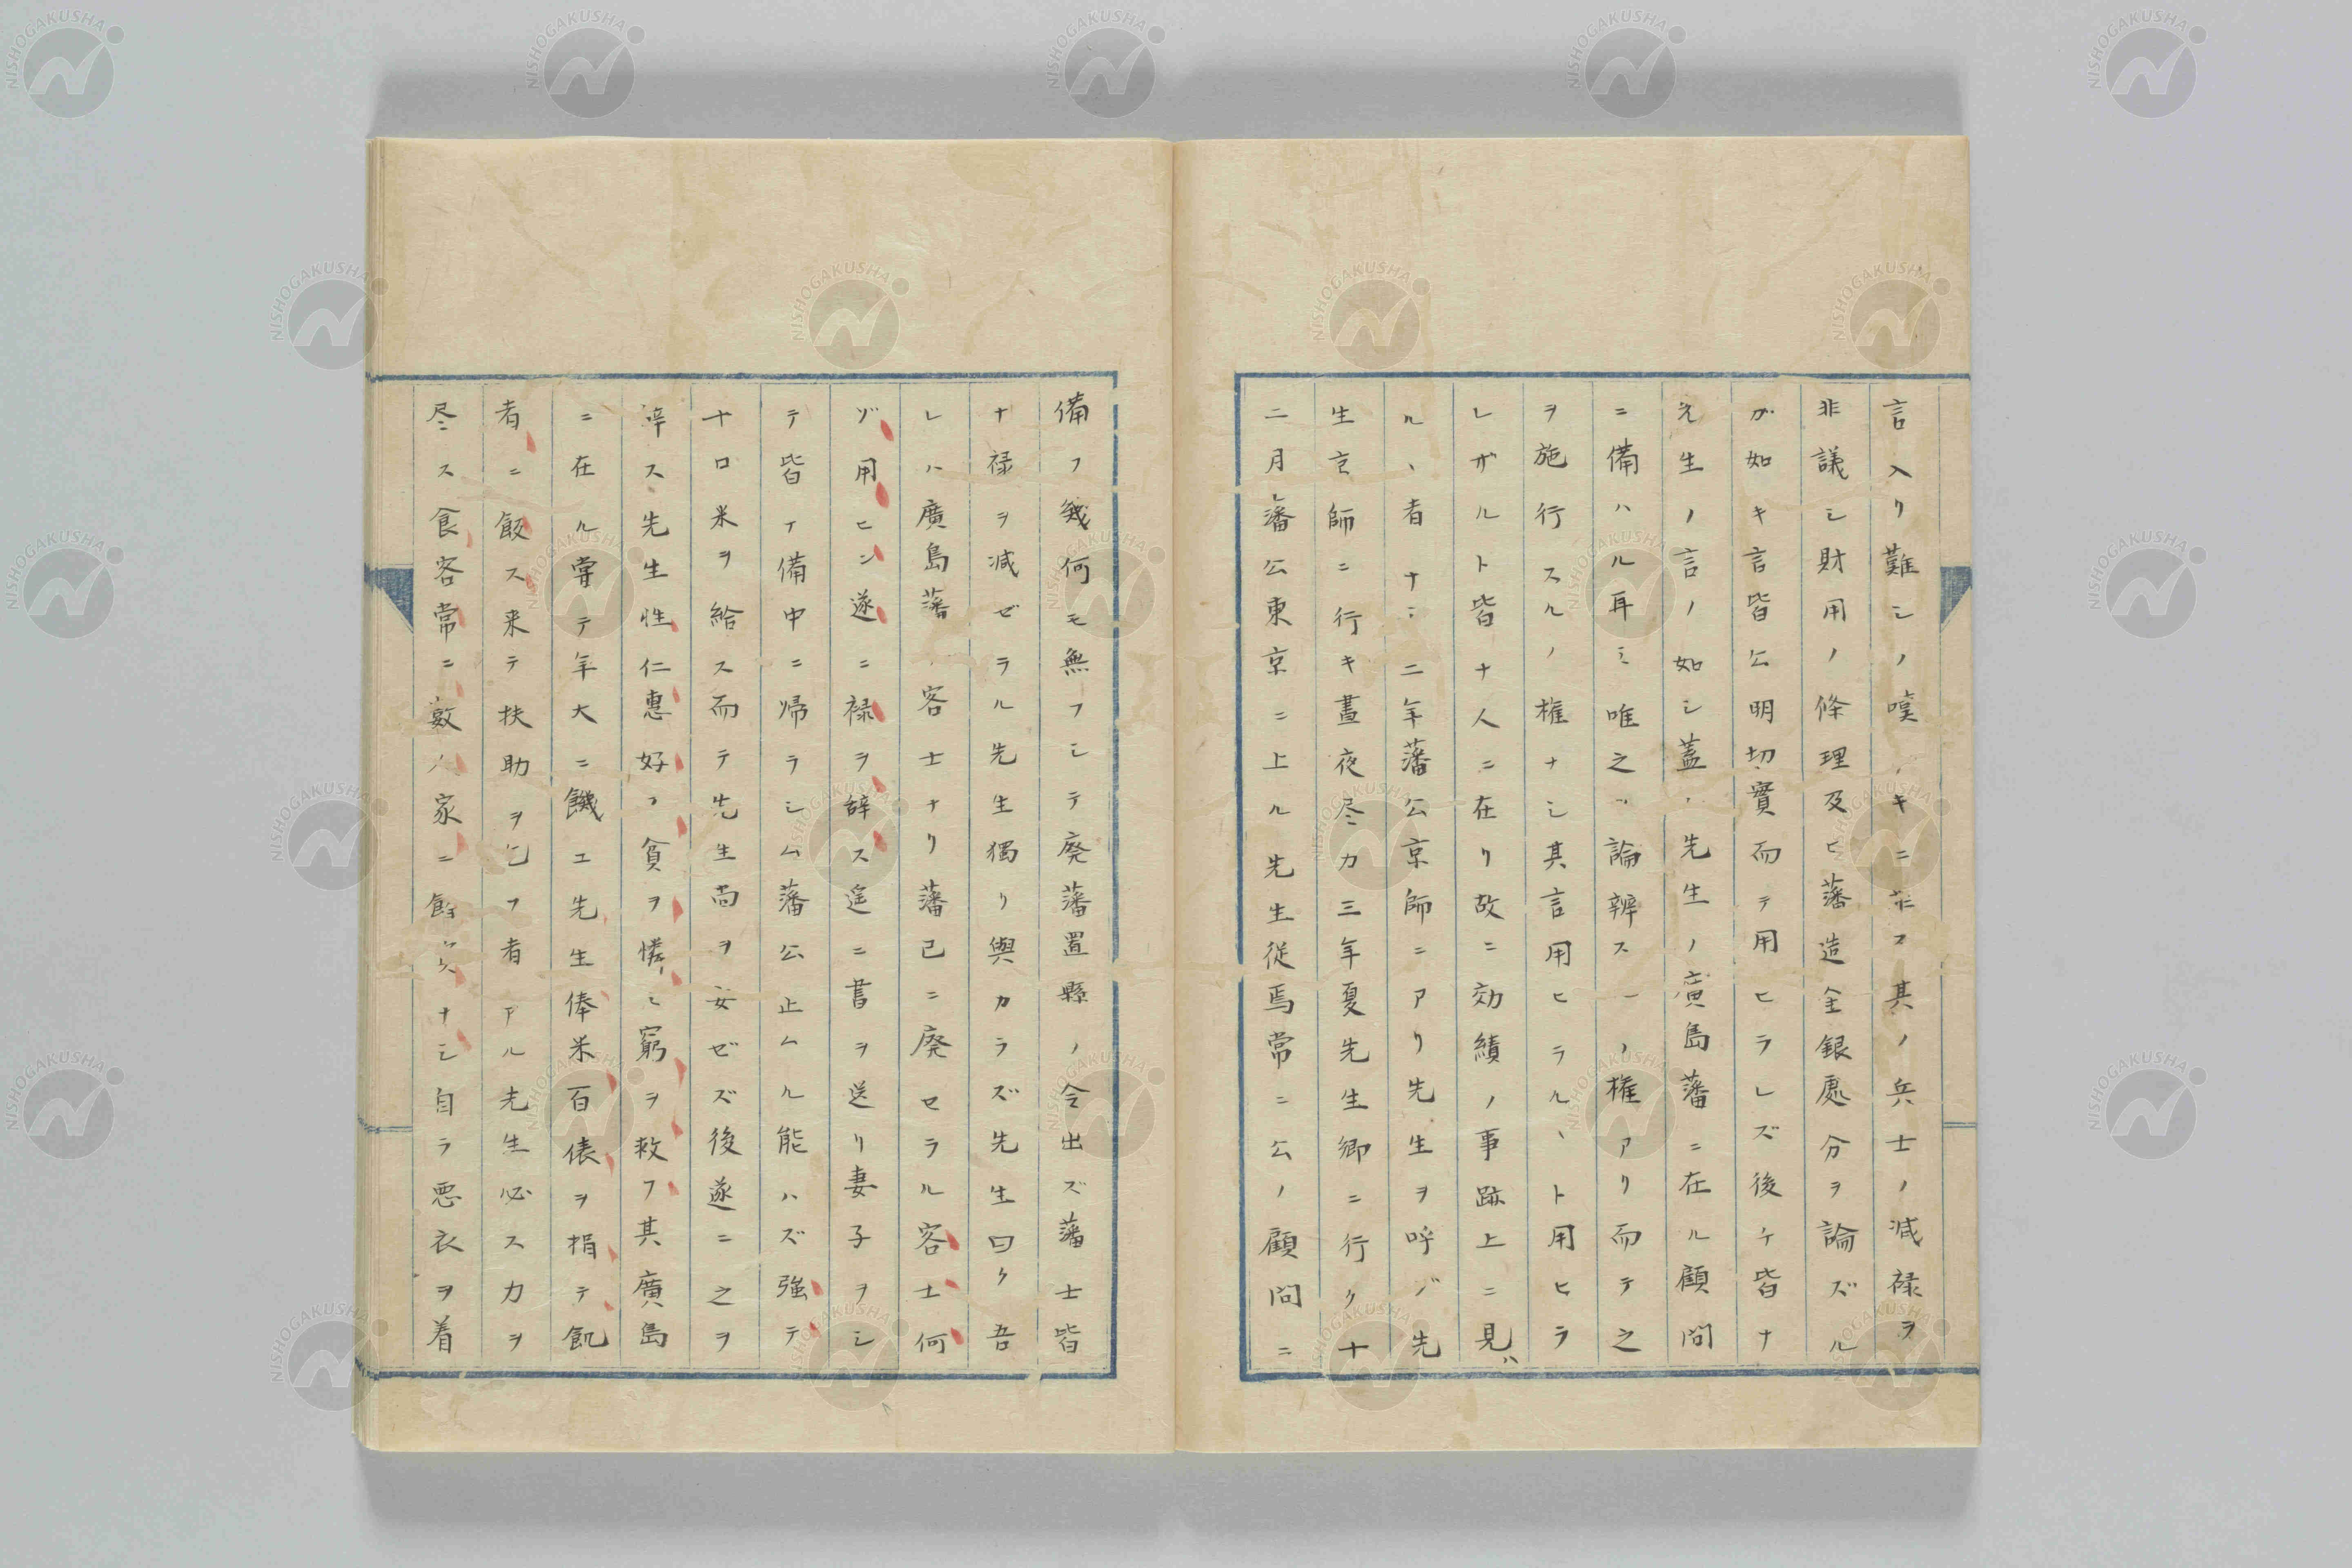 言入リ難シノ嘆キニ非ス其ノ兵士ノ減禄ヲ
非議シ財用ノ條理及ヒ藩造金銀處分ヲ論ズル
ガ如キ言皆公明切實而テ用ヒラレズ後ケ皆ナ
先生ノ言ノ如シ蓋先生ノ廣島藩ニ在ル顧問
ニ備ハル耳ミ唯之論辨スノ權アリ而テ之
ヲ施行スルノ權ナシ其言用ヒラル、ト用ヒラ
レザルト皆ナ人ニ在リ故ニ効績ノ事跡上ニ見ハ
ル、者ナ二年藩公京師ニアリ先生ヲ呼ブ先
生京師ニ行キ晝夜尽力三年夏先生郷ニ行ク十
二月藩公東京ニ上ル先生従焉常ニ公ノ顧問ニ
備フ幾何モ無フシテ廃藩置縣ノ令出ズ藩士皆
ナ禄ヲ減ゼラル先生獨リ與カラズ先生曰ク吾
レハ廣島藩客士ナリ藩已ニ廃セラル客士何
ゾ用ヒン遂ニ禄ヲ辞ス遥ニ書ヲ送リ妻子ヲシ
テ皆ナ備中ニ帰ラシム藩公止ムル能ハズ強テ
十口米ヲ給ス而テ先生尚ヲ安ゼズ後遂ニ之ヲ
辛ス先生性仁惠好フ貧ヲ憐ミ窮ヲ救フ其廣島
ニ在ル嘗テ年大ニ饑ユ先生俸米百俵ヲ捐テ飢
者ニ飯ス来テ扶助ヲ乞フ者アル先生必ス力ヲ
尽ス食客常ニ數人家ニ餘ナシ自ラ悪衣ヲ着
NISHOGAKUSHA